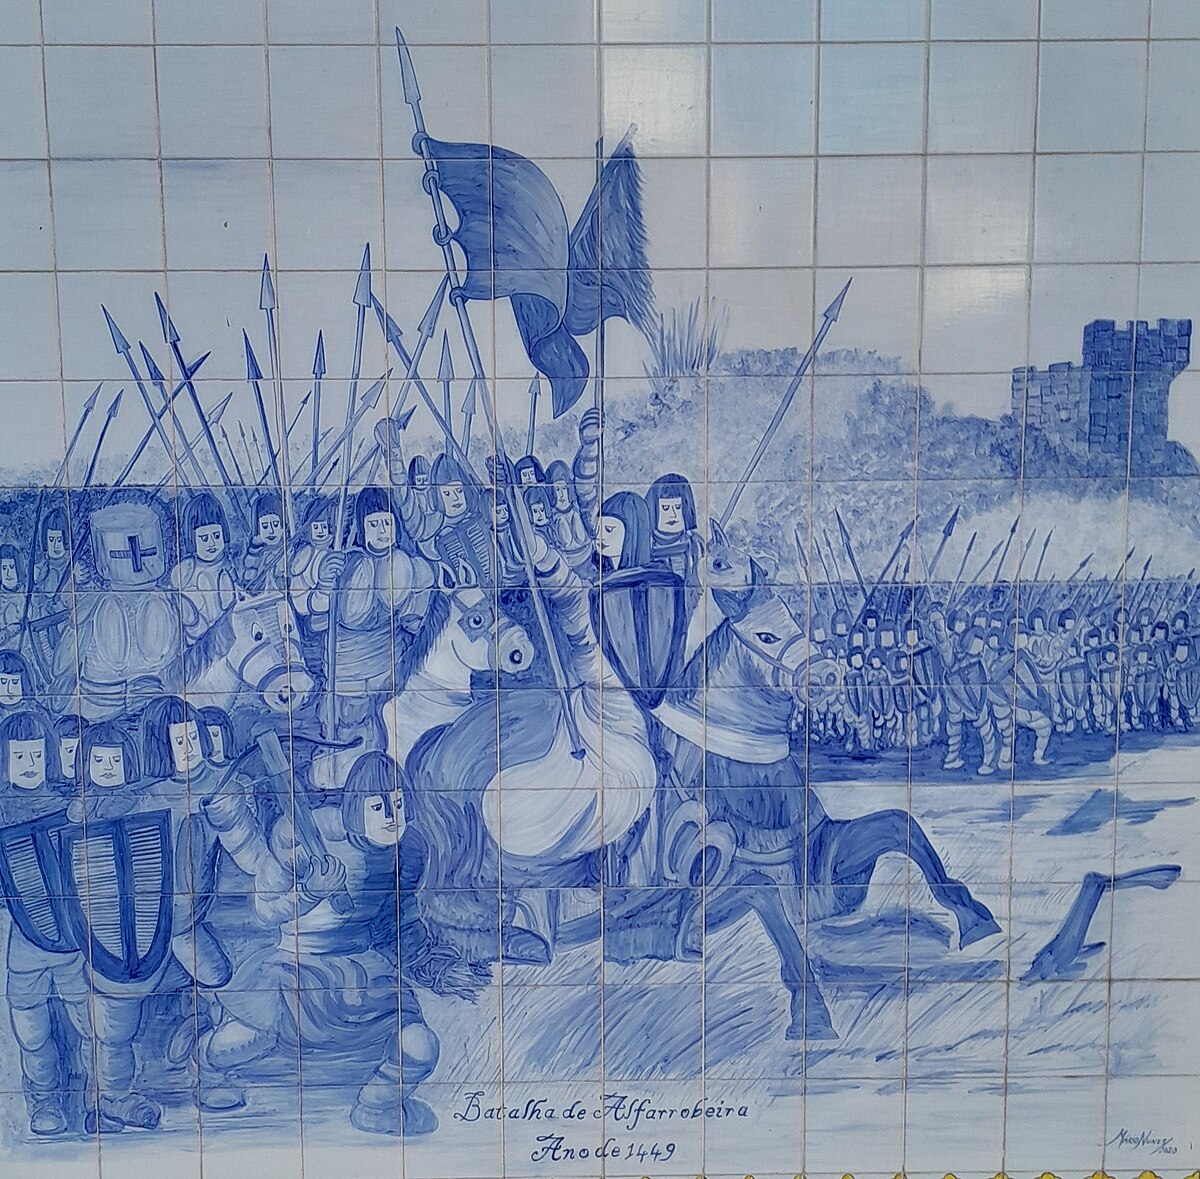 Batalha de Alfarrobeira
Ano de 1449
Mário Nunes
2020